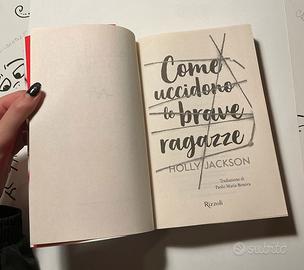 Come
uccidono
le brave
ragazze
HOLLY JACKSON
Traduzione di
Paolo Maria Bonora
Rizzoli
subito